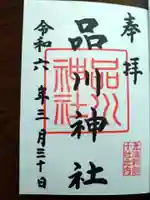 奉拝
品川神社
品川神社
令和六年三月三十日